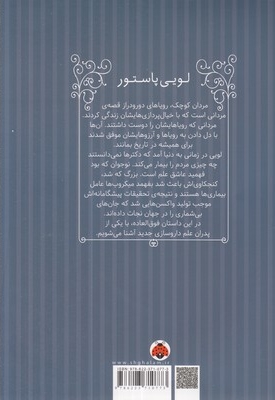 لویی پاستور
مردان کوچک، رویاهای دورودراز قصه‌ی
مردانی است که با خیال‌پردازی‌هایشان زندگی کردند.
مردانی که رویاهایشان را دوست داشتند. آن‌ها
با دل دادن به رویاها و آرزوهایشان موفق شدند
برای همیشه در تاریخ بمانند.
لویی در زمانی به دنیا آمد که دکترها نمی‌دانستند
چه چیزی مردم را بیمار می‌کند. نوجوان که بود
فهمید عاشق علم است. بزرگ که شد،
کنجکاوی‌اش باعث شد بفهمد میکروب‌ها عامل
بیماری‌ها هستند و نتیجه‌ی تحقیقات پیشگامانه‌اش
موجب تولید واکسن‌هایی شد که جان‌های
بی‌شماری را در جهان نجات داده‌اند.
در این داستان فوق‌العاده، با یکی از
پدران علم داروسازی جدید آشنا می‌شویم.